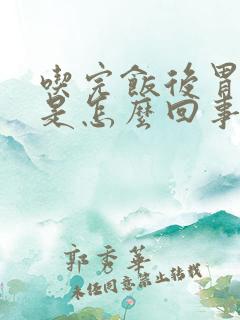 喫完飯後胃
是怎麼回事
郭秀華
未经同意禁止转载